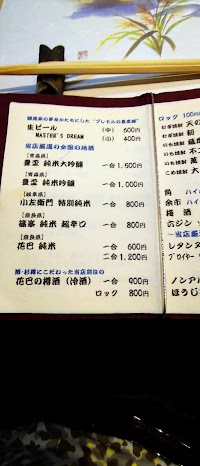 醸造家の夢をかたちにした"プレモルの最高峰"
生ビール (中) 600円
MASTER'S DREAM (小) 400円
当店厳選の全国の地酒
【青森県】
豊盃 純米大吟醸 一合 1,500円
【青森県】
豊盃 純米吟醸 一合 1,000円
【岐阜県】
小左衛門 特別純米 一合 800円
【奈良県】
篠峯 純米 超辛口 一合 800円
【奈良県】
花巴 純米 一合 600円
二合 1,200円
酒・お樽にこだわった当店別注の
花巴の樽酒(冷酒) 一合 900円
ロック 800円
ロック 100m
麦焼酎
麦焼酎
いも焼酎
いも焼酎
いも焼酎
こめ焼酎
角 ハイ
余市 ハイ
梅酒
カジン
～当店厳
レタンヌ
ブロイヤー
ノンアル
ほうじ